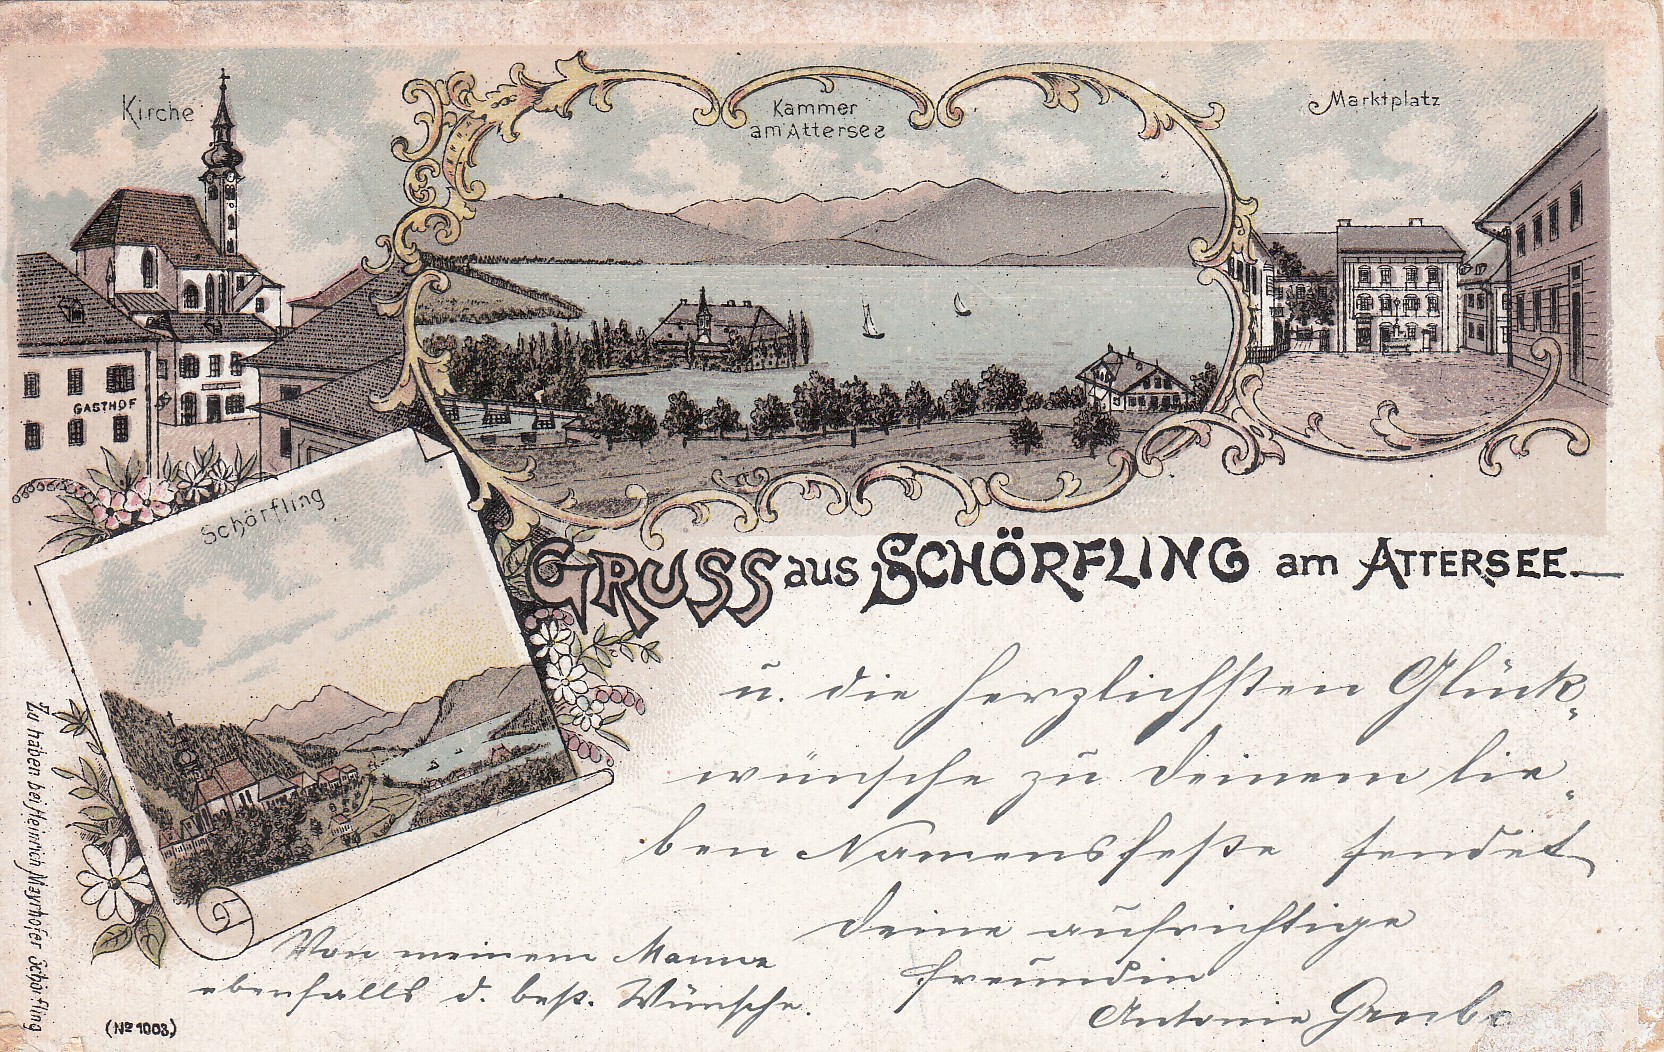 Kirche
Kammer
am Attersee
Marktplatz
GASTHOF
Schörfling
GRUSS aus SCHÖRFLING am ATTERSEE
u. die herzlichsten Glück-
wünsche zu Deinem lie-
ben Namensfeste sendet
Deine aufrichtige
Freundin
Antonie
Von meinem Manne
ebenfalls d. best. Wünsche.
Zu haben bei Heinrich Mayrhofer Schörfling
(No 1003)